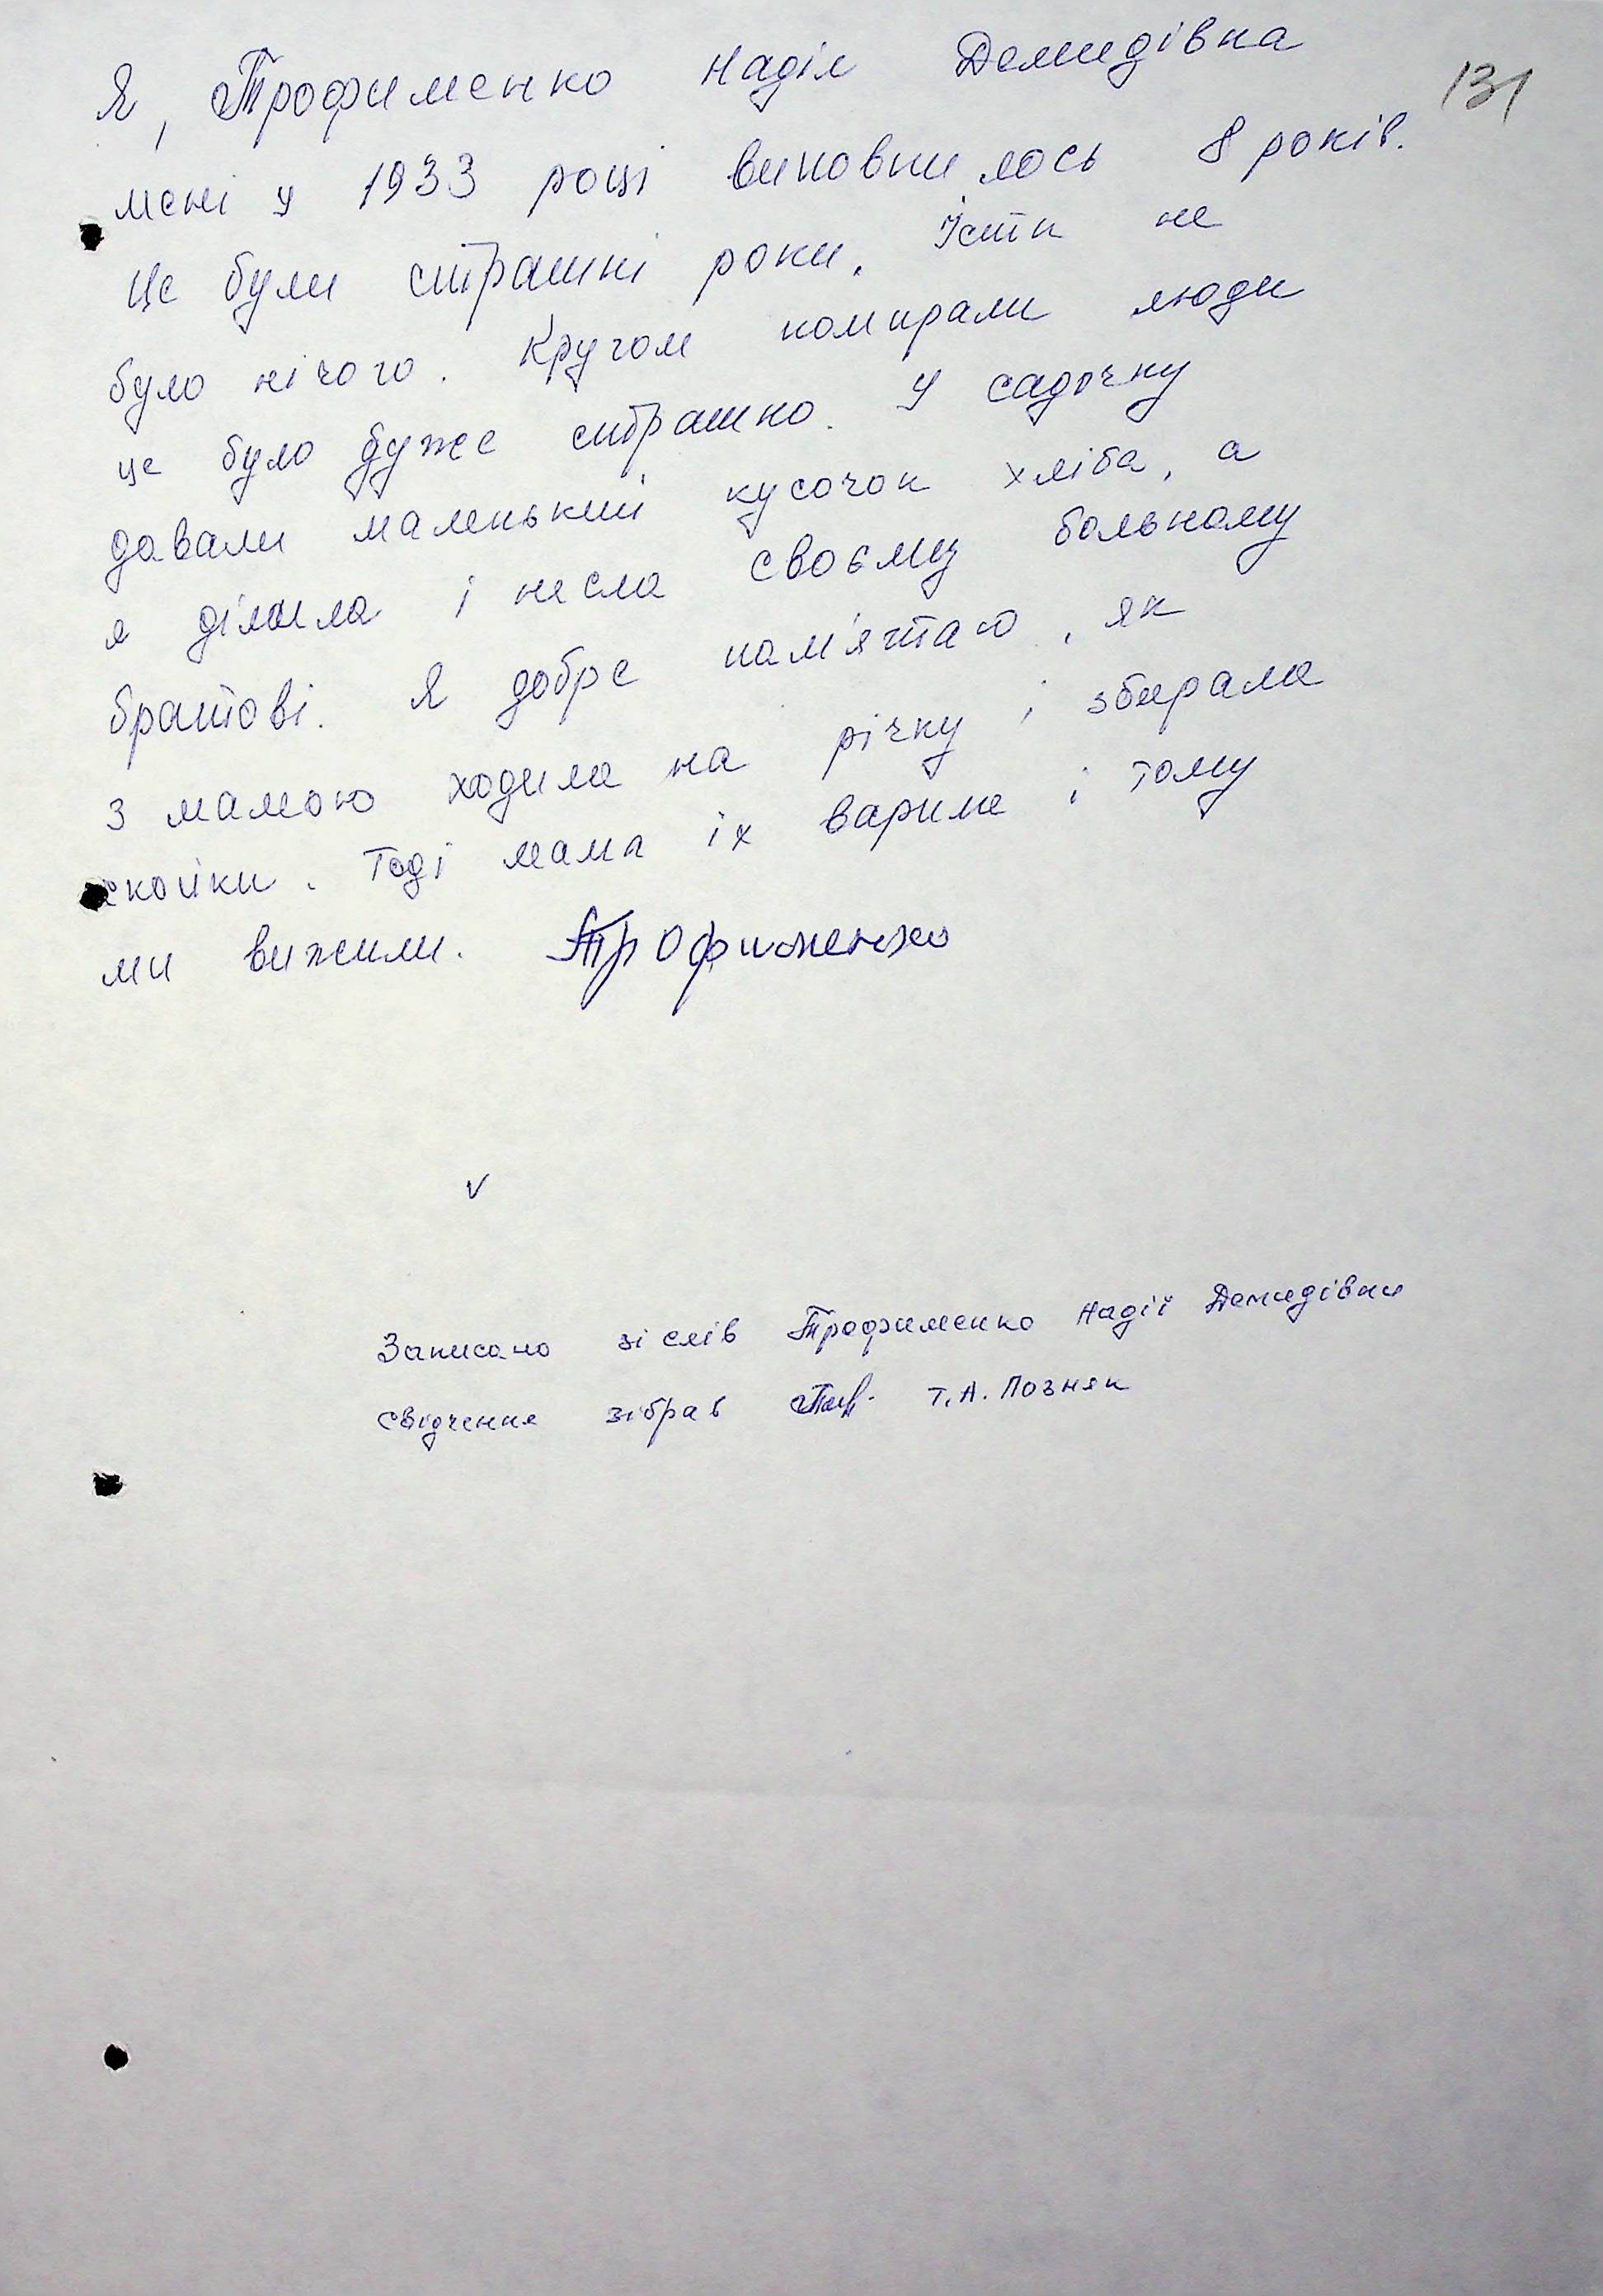 131
Я, Трофименко Надія Демидівна
мені у 1933 році виповнилось 8 років.
Це були страшні роки. Їсти не
було нічого. Кругом помирали люди
це було дуже страшно. У садочку
давали маленький кусочок хліба, а
я ділила і несла своєму больному
братові. Я добре пам'ятаю, як
з мамою ходила на річку і збирала
скойки. Тоді мама їх варила і тому
ми вижили. Трофименко
Записано зі слів Трофименко Надії Демидівни
свідчення зібрав Т.А. Позняк